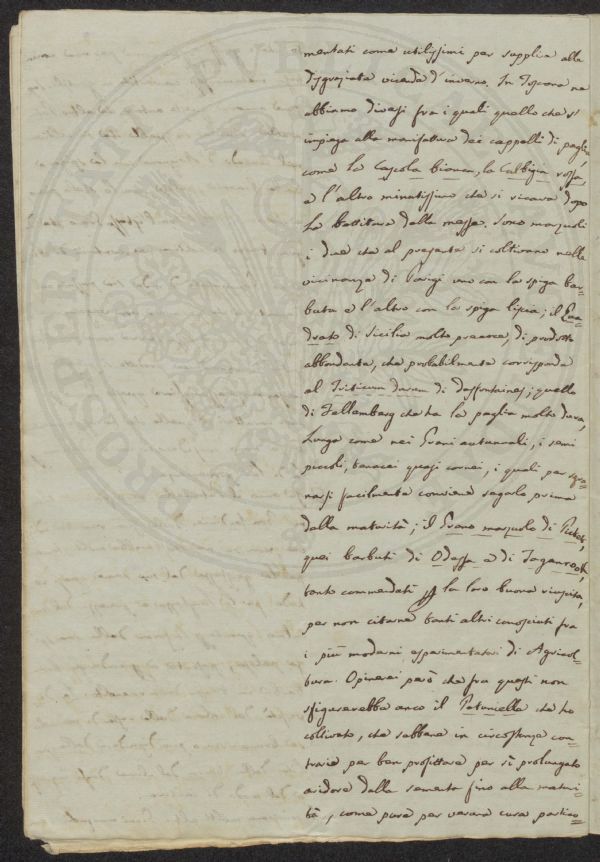 mentati come utilissimi per supplire alla
disgraziata vicenda d'inverno. In Toscana ne
abbiamo diversi fra i quali quello che s'
impiega alla manifattura dei cappelli di paglia,
come la Cascola bianca, la Calbigia rossa,
e l'altro minutissimo che si ricava dopo
la battitura dalla messe. Sono marzuoli
i due che al presente si coltivano nelle
vicinanze di Parigi uno con la spiga bar-
buta e l'altro con la spiga liscia; il Qua-
drato di Sicilia molto precoce, di prodotto
abbondante, che probabilmente corrisponde
al Triticum durum di Desfontaines; quello
di Fellemberg che ha la paglia molto dura,
lunga come nei Grani autunnali, i semi
piccoli, tenaci quasi cornei, i quali per sgra-
narsi facilmente conviene segarlo prima
della maturità; il Grano marzuolo di Pictet,
quei barbuti di Odessa e di Taganrock,
tanto commendati per la loro buona riuscita,
per non citarne tanti altri conosciuti fra
i più moderni esperimentatori di Agricol-
tura. Opinerei però che fra questi non
sfigurerebbe anco il Patanella che ho
coltivato, che sebbene in circostanze con-
trarie per ben profittare per sì prolungato
aridore dalla sementa fino alla maturi-
tà, come pure per verun cura partico-
PVBLI
PROSPERITATI